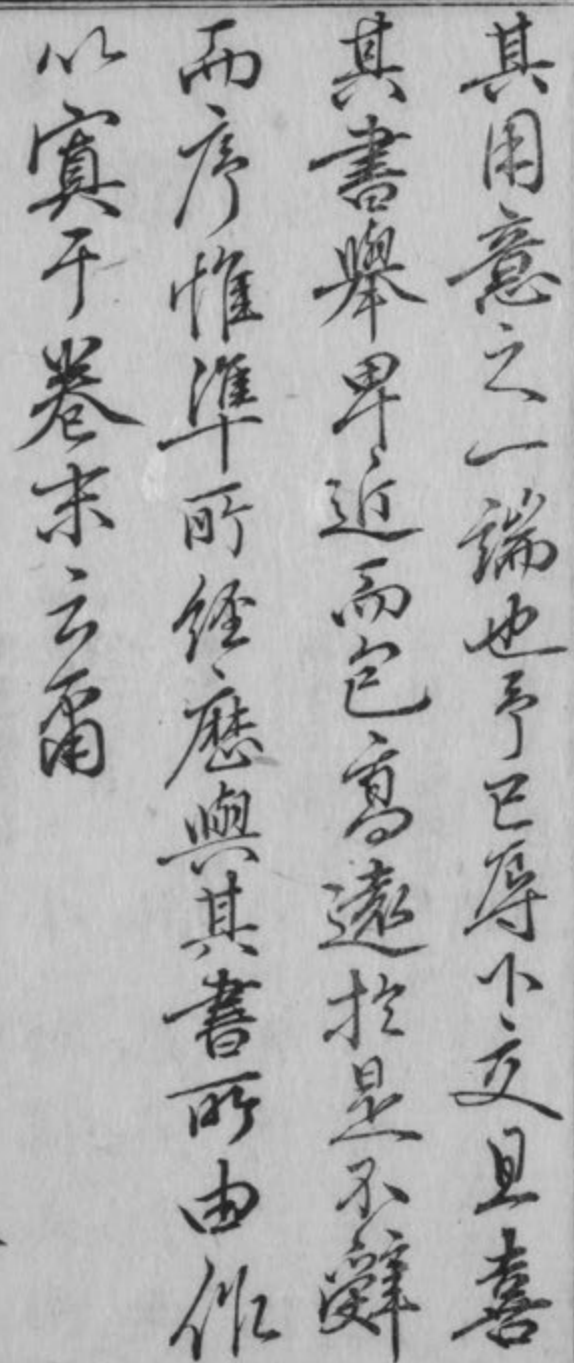 其用意之一端也予已辱下交且喜
其書舉卑近而包高遠於是不辭
而序惟準所經歷與其書所由作
以寘于卷末云爾